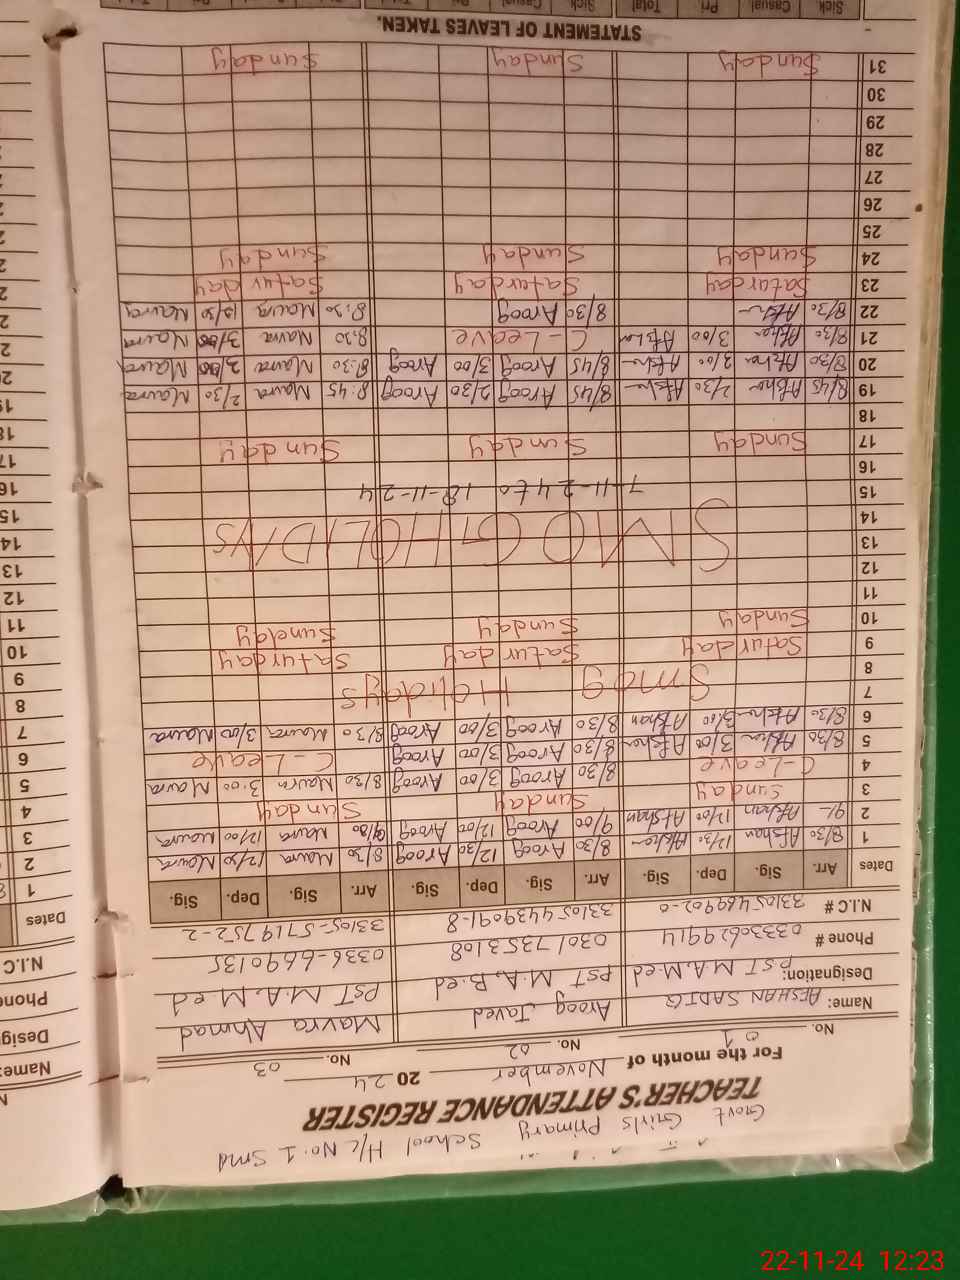 Govt Girls Primary School H/C No. 1 Smd
TEACHER'S ATTENDANCE REGISTER
For the month of November 2024
No. 01 No. 02 No. 03
Name: AFSHAN SADIQ Aroog Javed Mavra Ahmad
Designation: PST M.A.M.ed PST M.A.B.ed PST M.A.M.ed
Phone # 03330629914 03017353108 0336-6690135
N.I.C # 33105 4443091-8 33105-5719752-2
Dates Arr. Sig. Dep. Sig. Arr. Sig. Dep. Sig. Arr. Sig. Dep. Sig.
1 8/30 Afshan 12/30 Afshan 8/30 Aroog 12/30 Aroog 8/30 Mavra 12/30 Mavra
2 9/- Afshan 12/00 Afshan 9/00 Aroog 12/00 Aroog 9/00 Mavra 12/00 Mavra
3 Sunday Sunday Sunday
4 C-Leave 8/30 Aroog 3/00 Aroog 8/30 Mavra 3:00 Mavra
5 8/30 Afshan 3/00 Afshan 8/30 Aroog 3/00 Aroog C-Leave
6 8/30 Afshan 3/00 Afshan 8/30 Aroog 3/00 Aroog 8/30 Mavra 3/00 Mavra
7 Smog Holidays
8
9 Saturday Saturday Saturday
10 Sunday Sunday Sunday
11
12
13 SMOG HOLIDAYS
14
15 7-11-24 to 18-11-24
16
17 Sunday Sunday Sunday
18
19 8/45 Afshan 2/30 Afshan 8/45 Aroog 2/30 Aroog 8:45 Mavra 2/30 Mavra
20 8/30 Afshan 3/00 Afshan 8/45 Aroog 3/00 Aroog 8:30 Mavra 3/00 Mavra
21 8/30 Afshan 3/00 Afshan C-Leave 8:30 Mavra 3/00 Mavra
22 8/30 Afshan 8/30 Aroog 8:30 Mavra 12/30 Mavra
23 Saturday Saturday Saturday
24 Sunday Sunday Sunday
25
26
27
28
29
30
31 Sunday Sunday Sunday
STATEMENT OF LEAVES TAKEN.
Sick Casual Pri Total Sick Casual
Name:
Phone
N.I.C
Dates
1
2
3
4
5
6
7
8
9
10
11
12
13
14
15
16
17
18
19
22-11-24 12:23